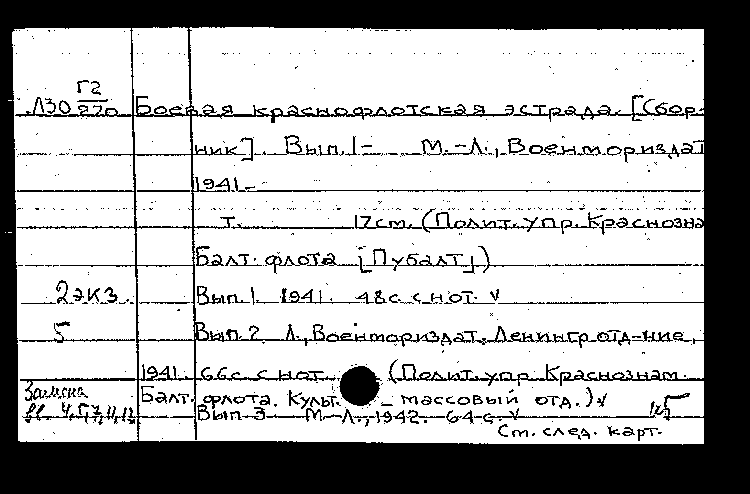 Г2
Л30 870 Боевая краснофлотская эстрада. [Сбор-
ник]. Вып. 1- М.-Л., Военмориздат
1941-
т. 17см. (Полит. упр. Краснозна
Балт. флота [Пубалт])
2экз. Вып. 1. 1941. 48с. с нот. v
5 Вып. 2. Л., Военмориздат, Ленингр отд-ние,
1941. 66с. с нот. (Полит. упр. Краснознам.
Балт. флота. Культ. - массовый отд.) v
Вып. 3. М-Л., 1942. 64 с. v
См. след. карт.